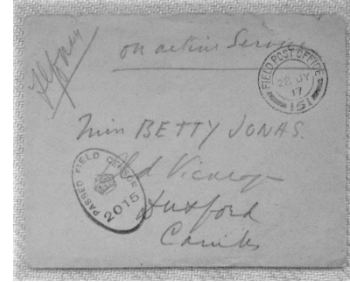 on active Service
FIELD POST OFFICE
28 JY
17
151
Miss BETTY JONAS.
Old Vicarage
Duxford
Cambs
PASSED FIELD CENSOR
2015